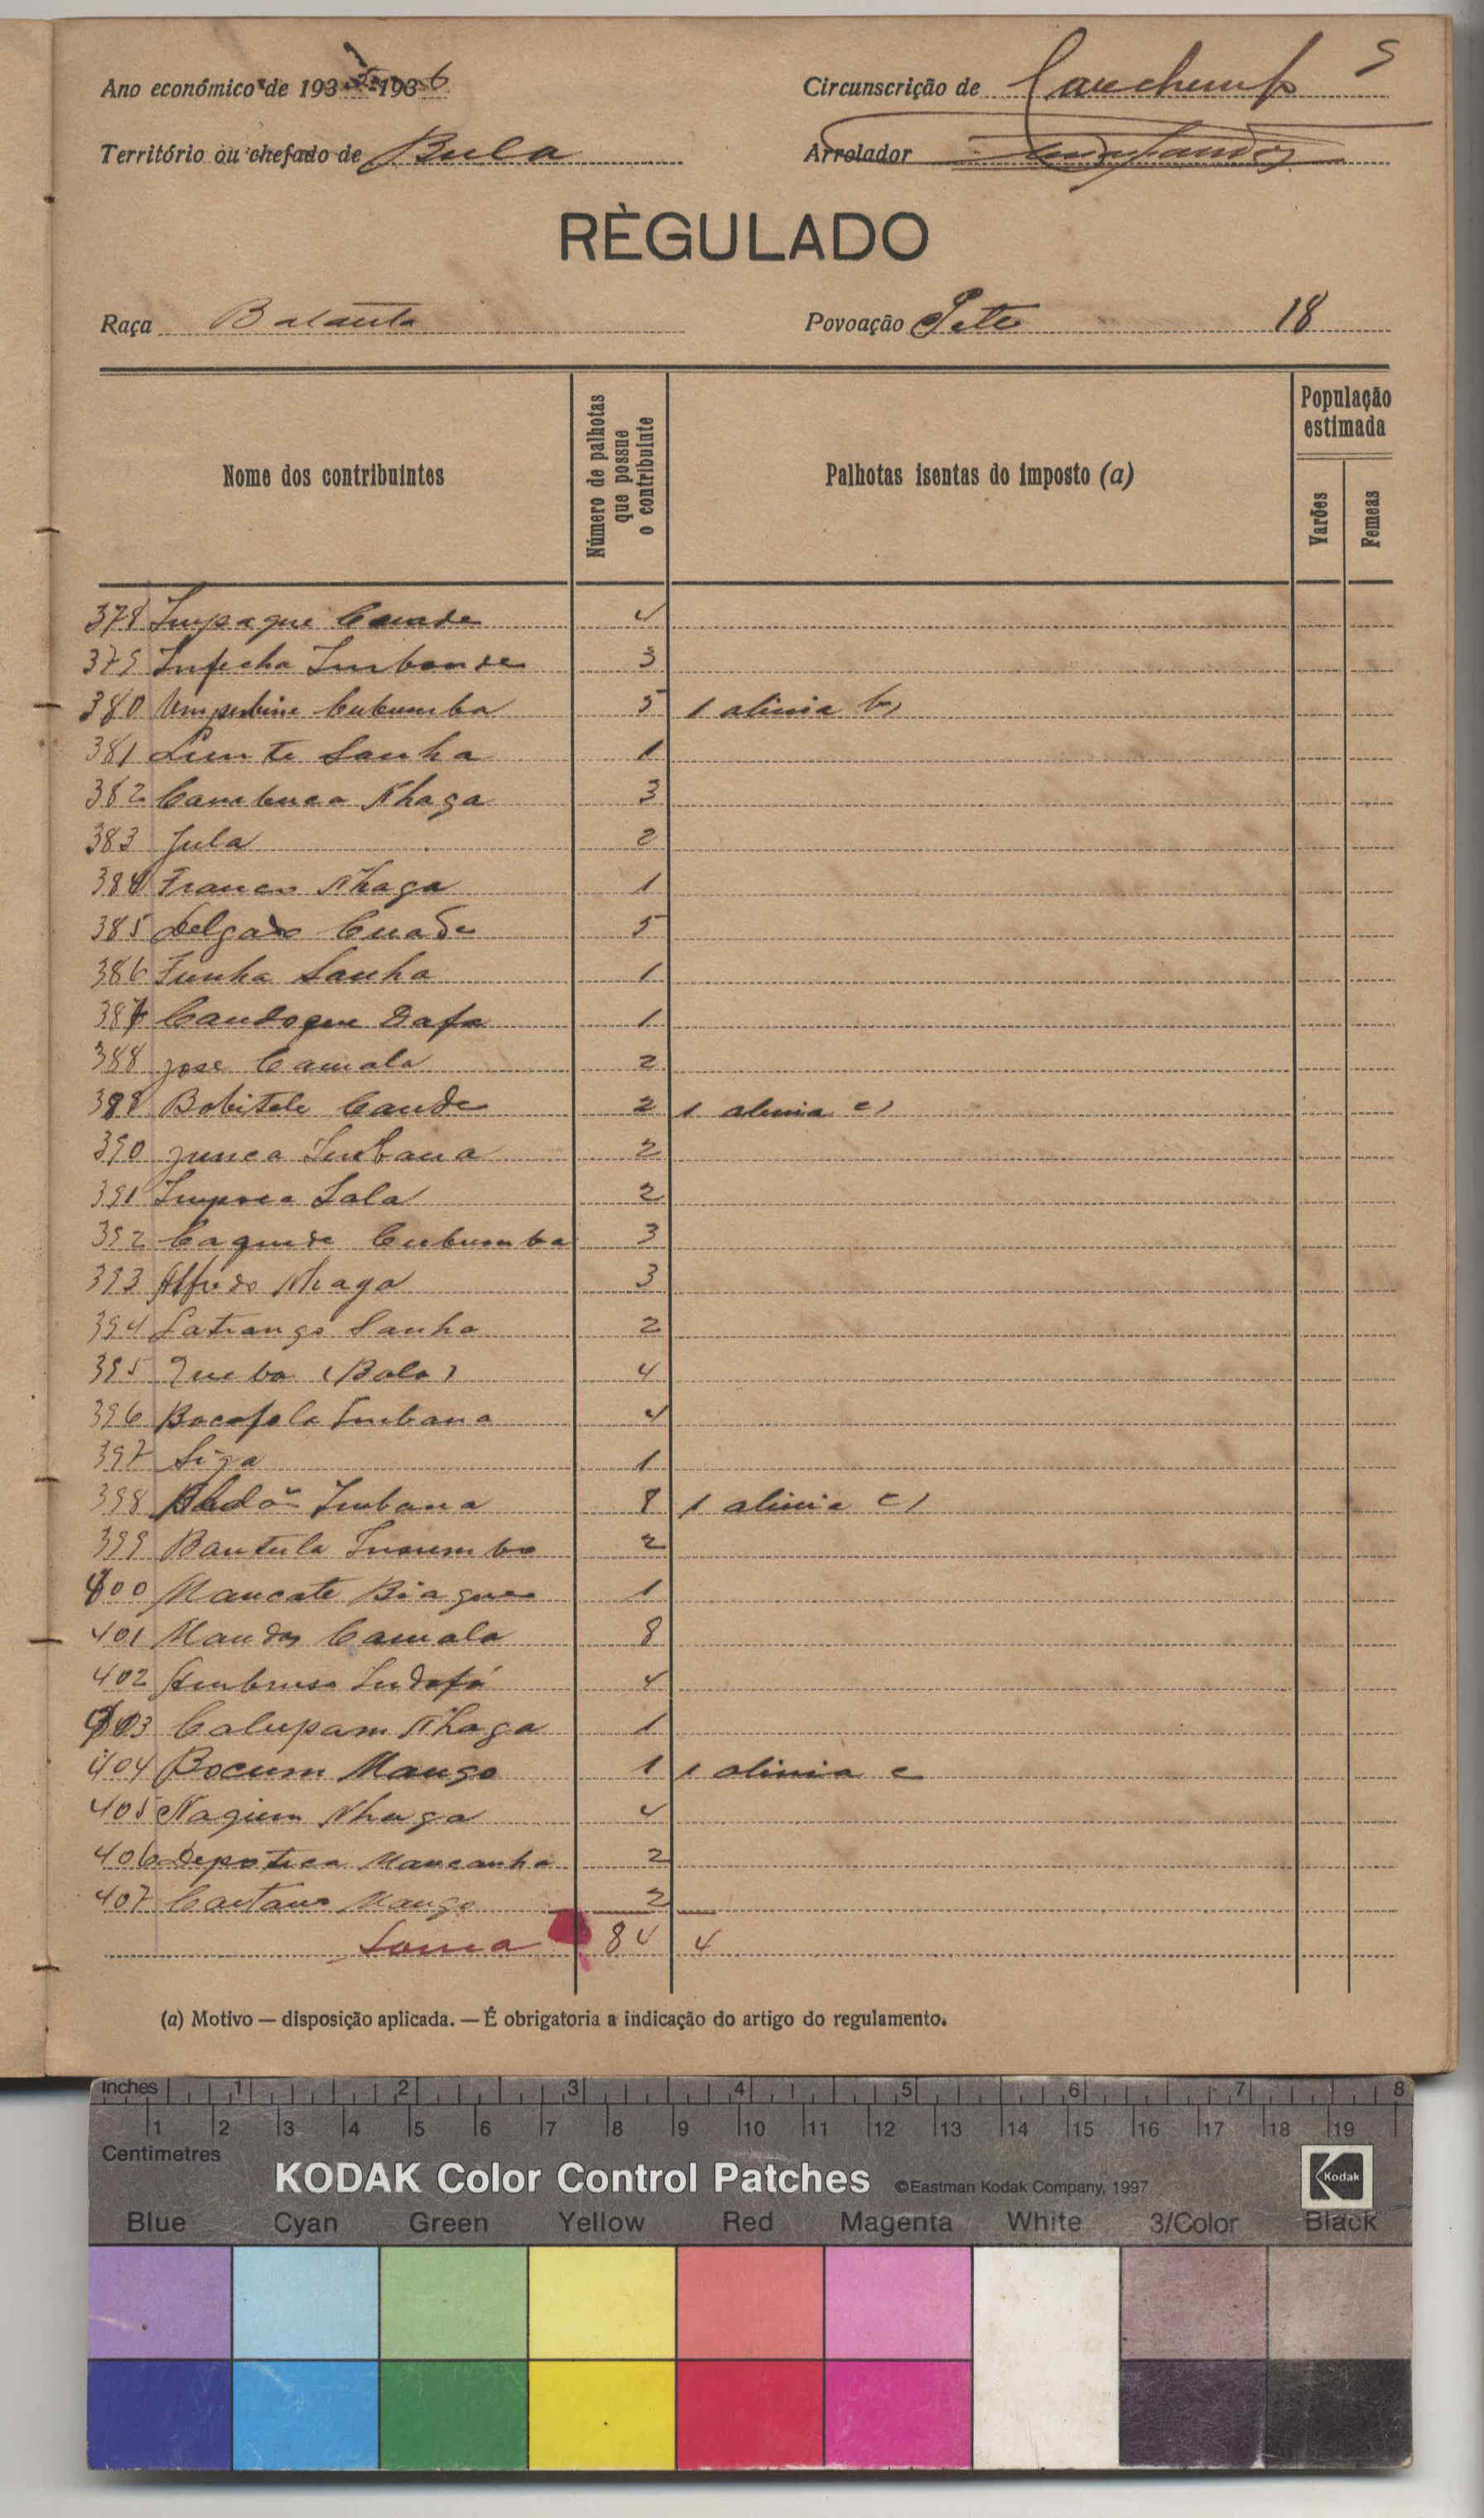 Ano económico de 193 -1936
Circunscrição de
Território ou chefado de Bula
Arrolador
RÈGULADO
Raça Balanta
Povoação Pete 18
Nome dos contribuintes
Número de palhotas que possue o contribuinte
Palhotas isentas do imposto (a)
População estimada
Varões
Femeas
378 Impaque 4
379 Infecha Imbonde 3
380 Cubumba 5 1 alinia b)
381 Sanha 1
382 Nhaga 3
383 Jula 2
384 Franco Nhaga 1
385 Delgado Cuade 5
386 Funha Sanha 1
387 Candoque Dafa 1
388 Jose Camala 2
389 Bobitele Cande 2 1 alinia c)
390 Junca Imbana 2
391 Lala 2
392 Caquide Cubumba 3
393 Alfredo Nhaga 3
394 Latrango Sanha 2
395 Queba (Bala) 4
396 Bacafola Imbana 4
397 Siga 1
398 Imbana 8 1 alinia c)
399 Bantula 2
400 Mancate Biague 1
401 Camala 8
402 Indafá 4
403 Calupam Nhaga 1
404 Bocum Mango 1 1 alinia c
405 Nagium Nhaga 4
406 Mancanha 2
407 Caetano Mango 2
Soma 84 4
(a) Motivo — disposição aplicada. — É obrigatoria a indicação do artigo do regulamento.
Inches 1 2 3 4 5 6 7 8
1 2 3 4 5 6 7 8 9 10 11 12 13 14 15 16 17 18 19
Centimetres
KODAK Color Control Patches ©Eastman Kodak Company, 1997 Kodak
Blue Cyan Green Yellow Red Magenta White 3/Color Black